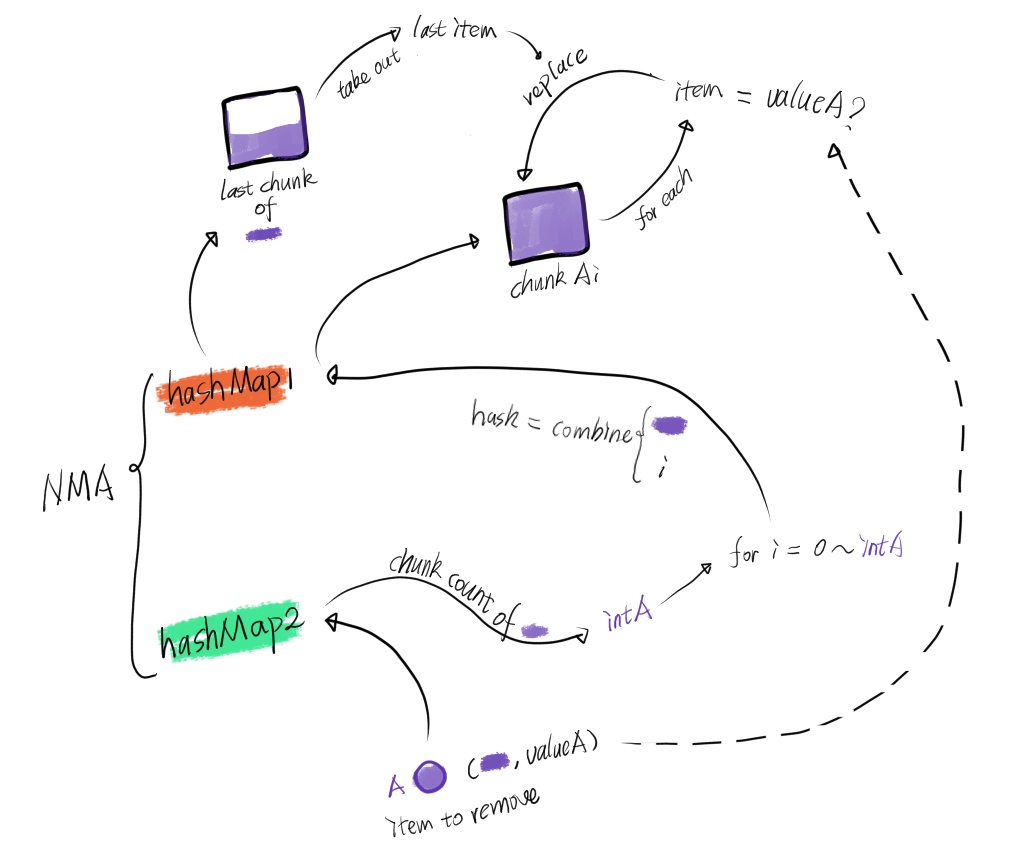 last item
take out
replace
item = valueA?
last chunk
of
for each
chunk Ai
hashMap1
hask = combine{
i
NMA
for i = 0 ~ intA
chunk count of
intA
hashMap2
A ( , valueA)
item to remove